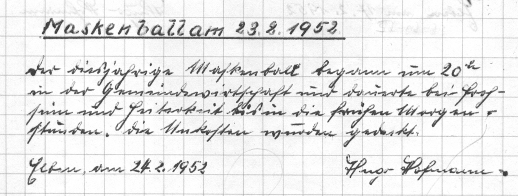 Maskenball am 23.2.1952
Der diesjährige Maskenball begann um 20 Uhr
in der Gemeindewirtschaft und dauerte bei Froh-
sinn und Heiterkeit bis in die frühen Morgen-
stunden. Die Unkosten wurden gedeckt.
Elben, am 24.2.1952 Hugo Hofmann.